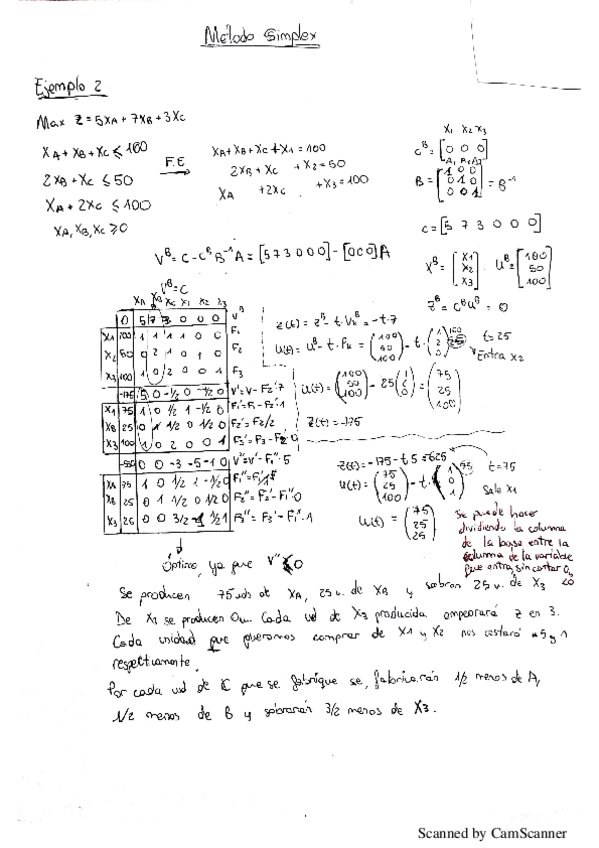 Método Simplex
Ejemplo 2
Max Z = 5XA + 7XB + 3XC
XA + XB + XC ≤ 100
2XB + XC ≤ 50
XA + 2XC ≤ 100
XA, XB, XC ≥ 0
F.E
XA + XB + XC + X1 = 100
2XB + XC + X2 = 50
XA + 2XC + X3 = 100
X1 X2 X3
C^B = [0 0 0]
B = [1 0 0 / 0 1 0 / 0 0 1] = B^-1
C = [5 7 3 0 0 0]
V^B = C - C^B B^-1 A = [5 7 3 0 0 0] - [0 0 0] A
X^B = [X1 / X2 / X3] U^B = [100 / 50 / 100]
Z^B = C^B U^B = 0
V^B = C
XA XB XC X1 X2 X3
0 5 7 3 0 0 0 V^B
X1 100 1 1 1 1 0 0 F1
X2 50 0 2 1 0 1 0 F2
X3 100 1 0 2 0 0 1 F3
-175 5 0 -1/2 0 -7/2 0 V' = V - F2' 7
X1 75 1 0 1/2 1 -1/2 0 F1' = F1 - F2' · 1
XB 25 0 1 1/2 0 1/2 0 F2' = F2/2
X3 100 1 0 2 0 0 1 F3' = F3 - F2 0
-550 0 0 -3 -5 -1 0 V'' = V' - F1'' · 5
XA 75 1 0 1/2 1 -1/2 0
XB 25 0 1 1/2 0 1/2 0 F2'' = F2' - F1'' 0
X3 25 0 0 3/2 -1 1/2 1 F3'' = F3' - F1'' · 1
Z(t) = Z^B - t · Vk^B = -t · 7
U(t) = U^B - t · Pk = (100 / 50 / 100) - t · (1 / 2 / 0) t = 25
Entra X2
U(t) = (100 / 50 / 100) - 25 (1 / 2 / 0) = (75 / 25 / 100)
Z(t) = -175
Z(t) = -175 - t · 5 = 625
U(t) = (75 / 25 / 100) - t · (1 / 0 / 1) t = 75
Sale X1
U(t) = (75 / 25 / 25)
Se puede hacer
dividiendo la columna
de la base entre la
columna de la variable
que entra, sin contar 0,
Óptimo, ya que V'' ≤ 0
Se producen 75 uds de XA, 25 u. de XB y sobran 25 u. de X3
De X1 se producen 0u. Cada ud de X3 producida empeorará Z en 3.
Cada unidad que queramos comprar de X1 y X2 nos costará 5 y 1
respectivamente.
Por cada ud de C que se fabrique se fabricarán 1/2 menos de A,
1/2 menos de B y sobrarán 3/2 menos de X3.
Scanned by CamScanner